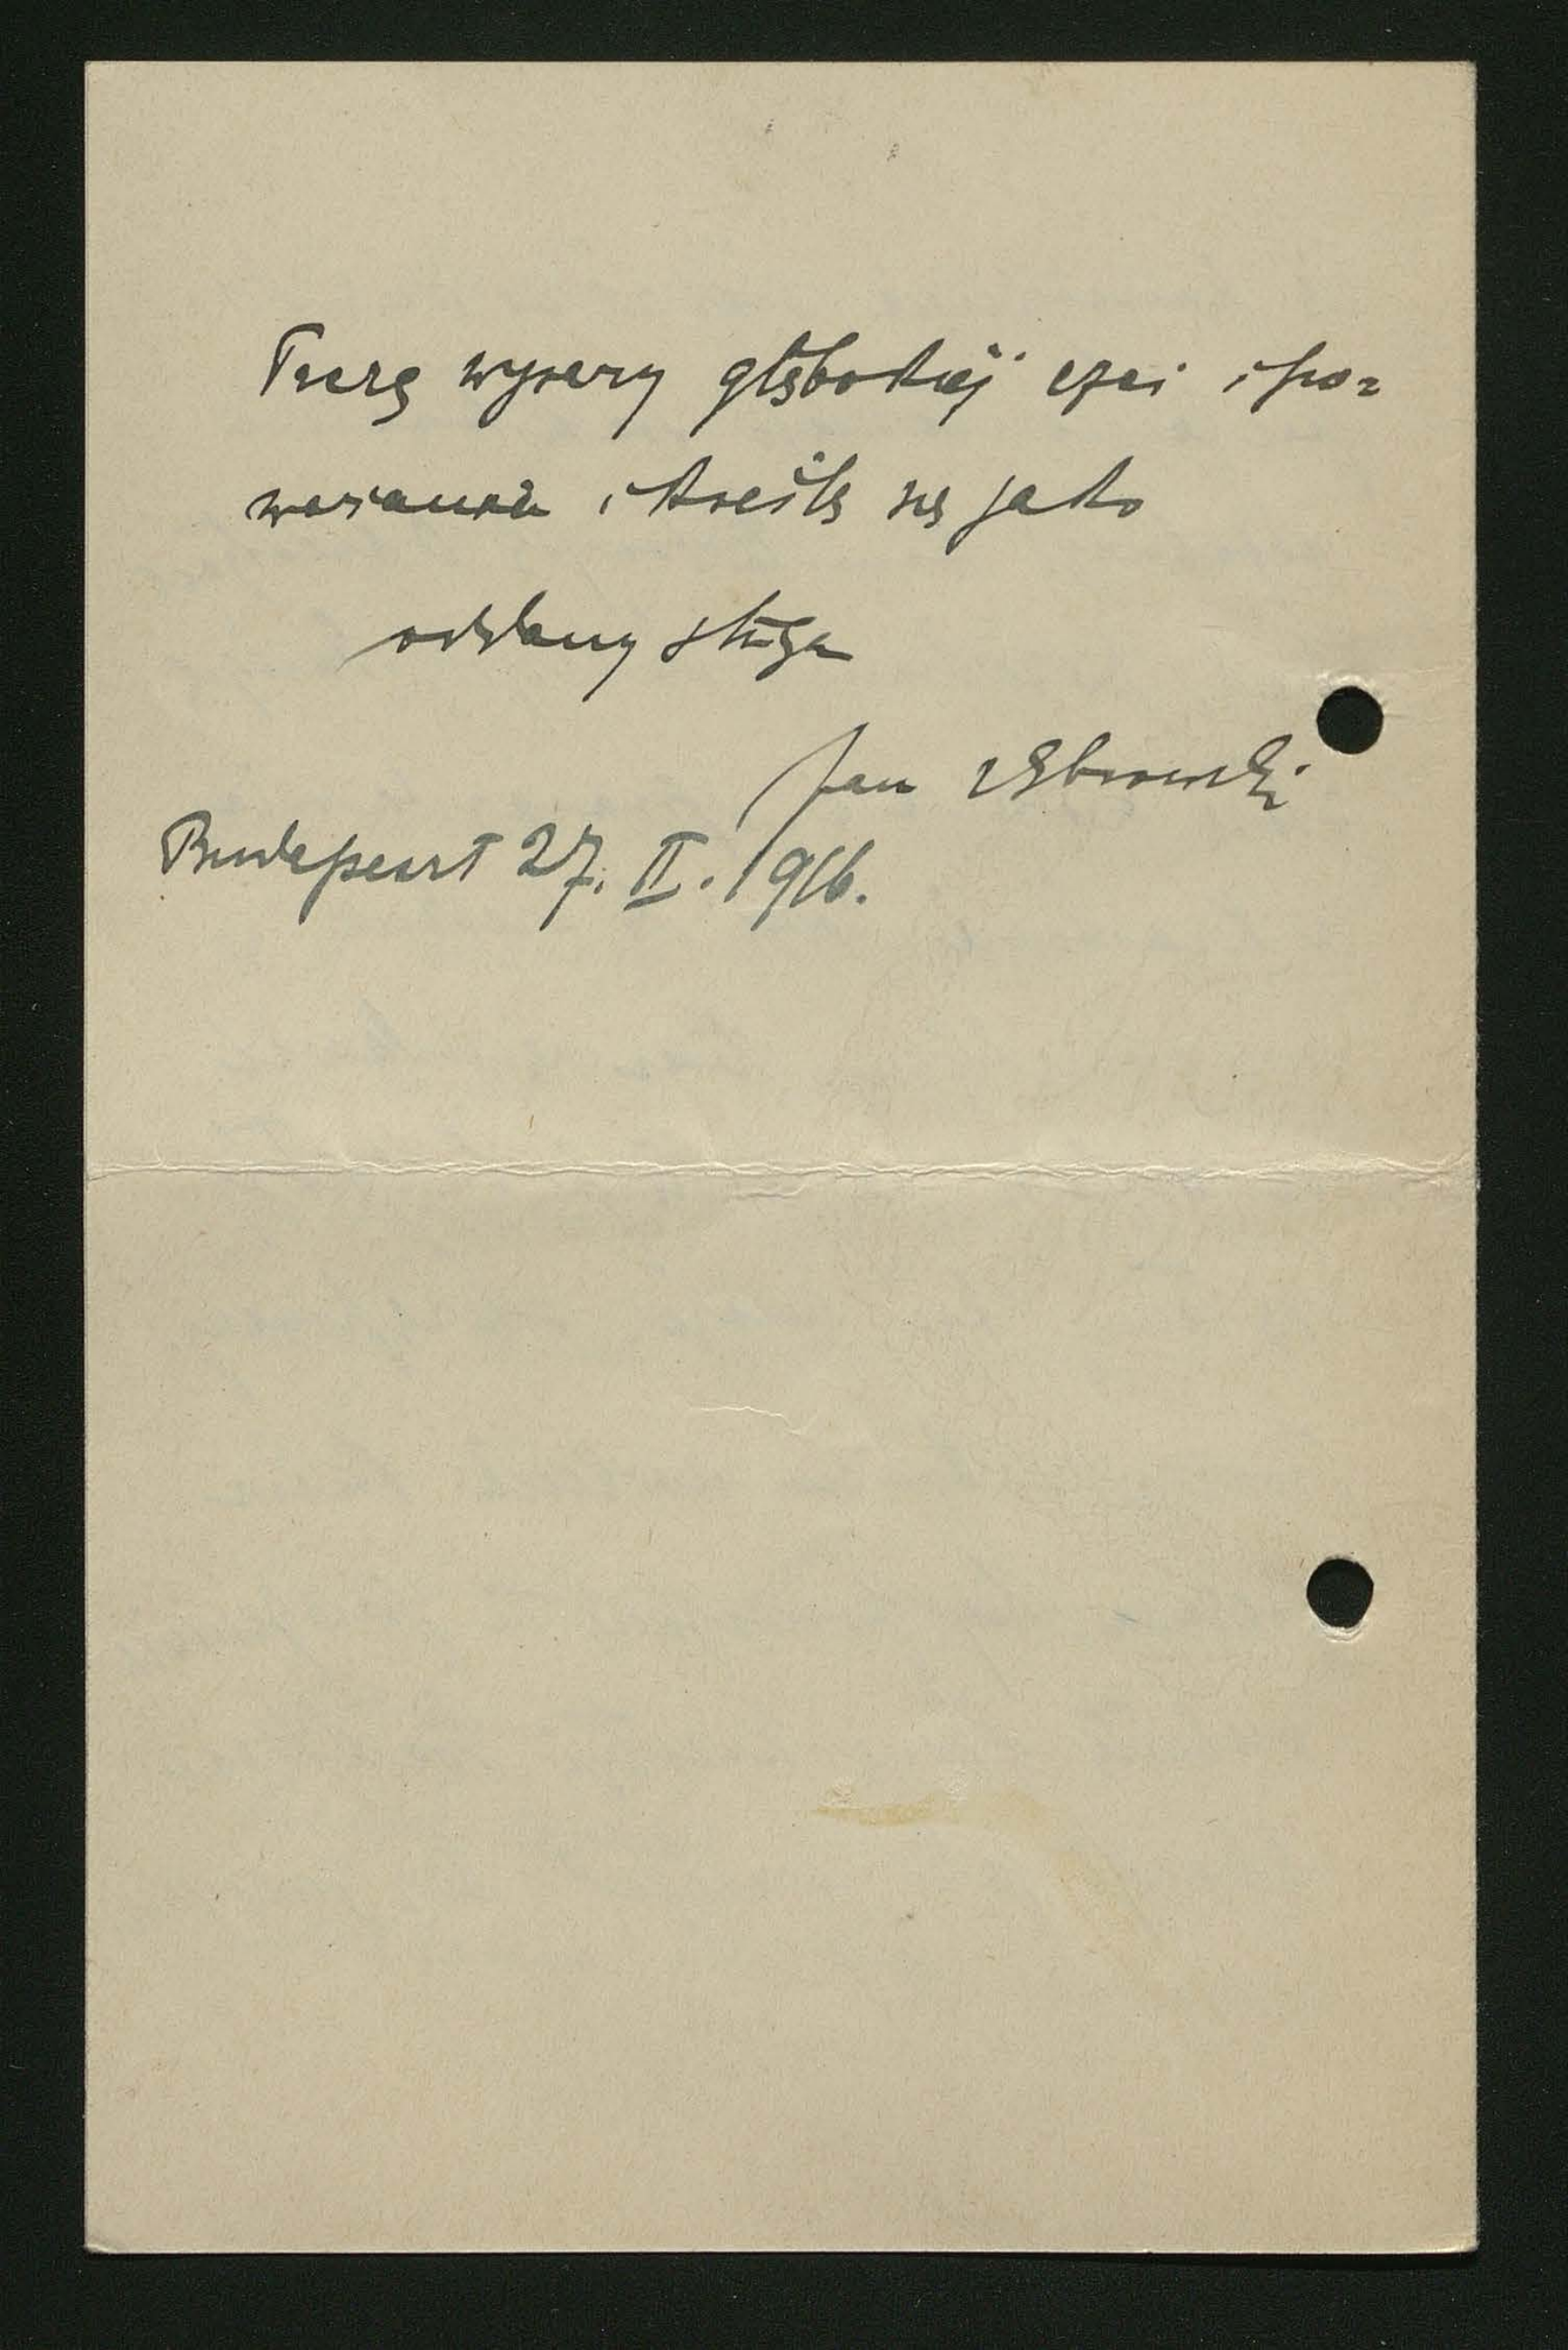 Piszę wyrazy głębokiej czci i po=
ważania i kreślę się jako
oddany sługa
Jan Dąbrowski
Budapeszt 27. II. 1916.